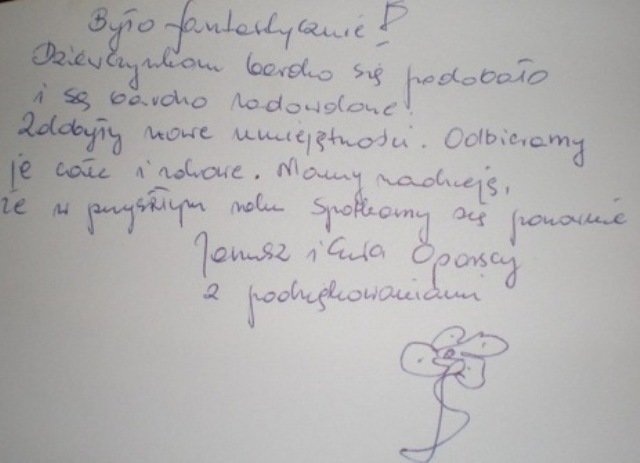 Było fantastycznie!
Dziewczynkom bardzo się podobało
i są bardzo zadowolone!
Zdobyły nowe umiejętności. Odbieramy
je całe i zdrowe. Mamy nadzieję,
że w przyszłym roku spotkamy się ponownie
Janusz i Ewa
z podziękowaniami